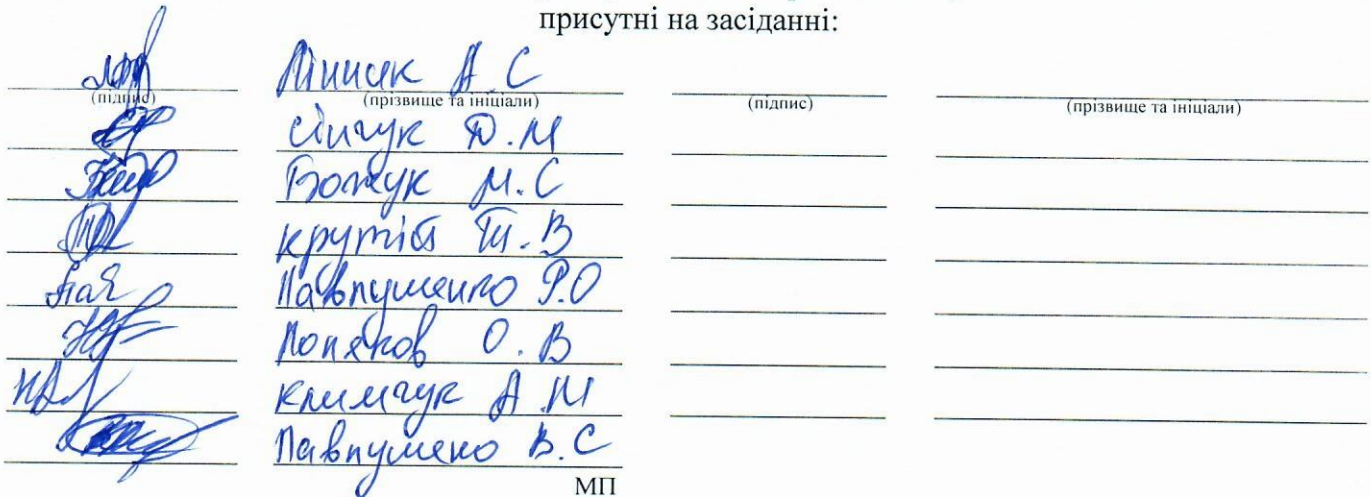 присутні на засіданні:
Линник А С
(підпис) (прізвище та ініціали) (підпис) (прізвище та ініціали)
Сінчук Д.М
Божук М.С
Крутій Т.В
Павпуменко Р.О
Поляков О.В
Климчук А М
Павпумено В.С
МП